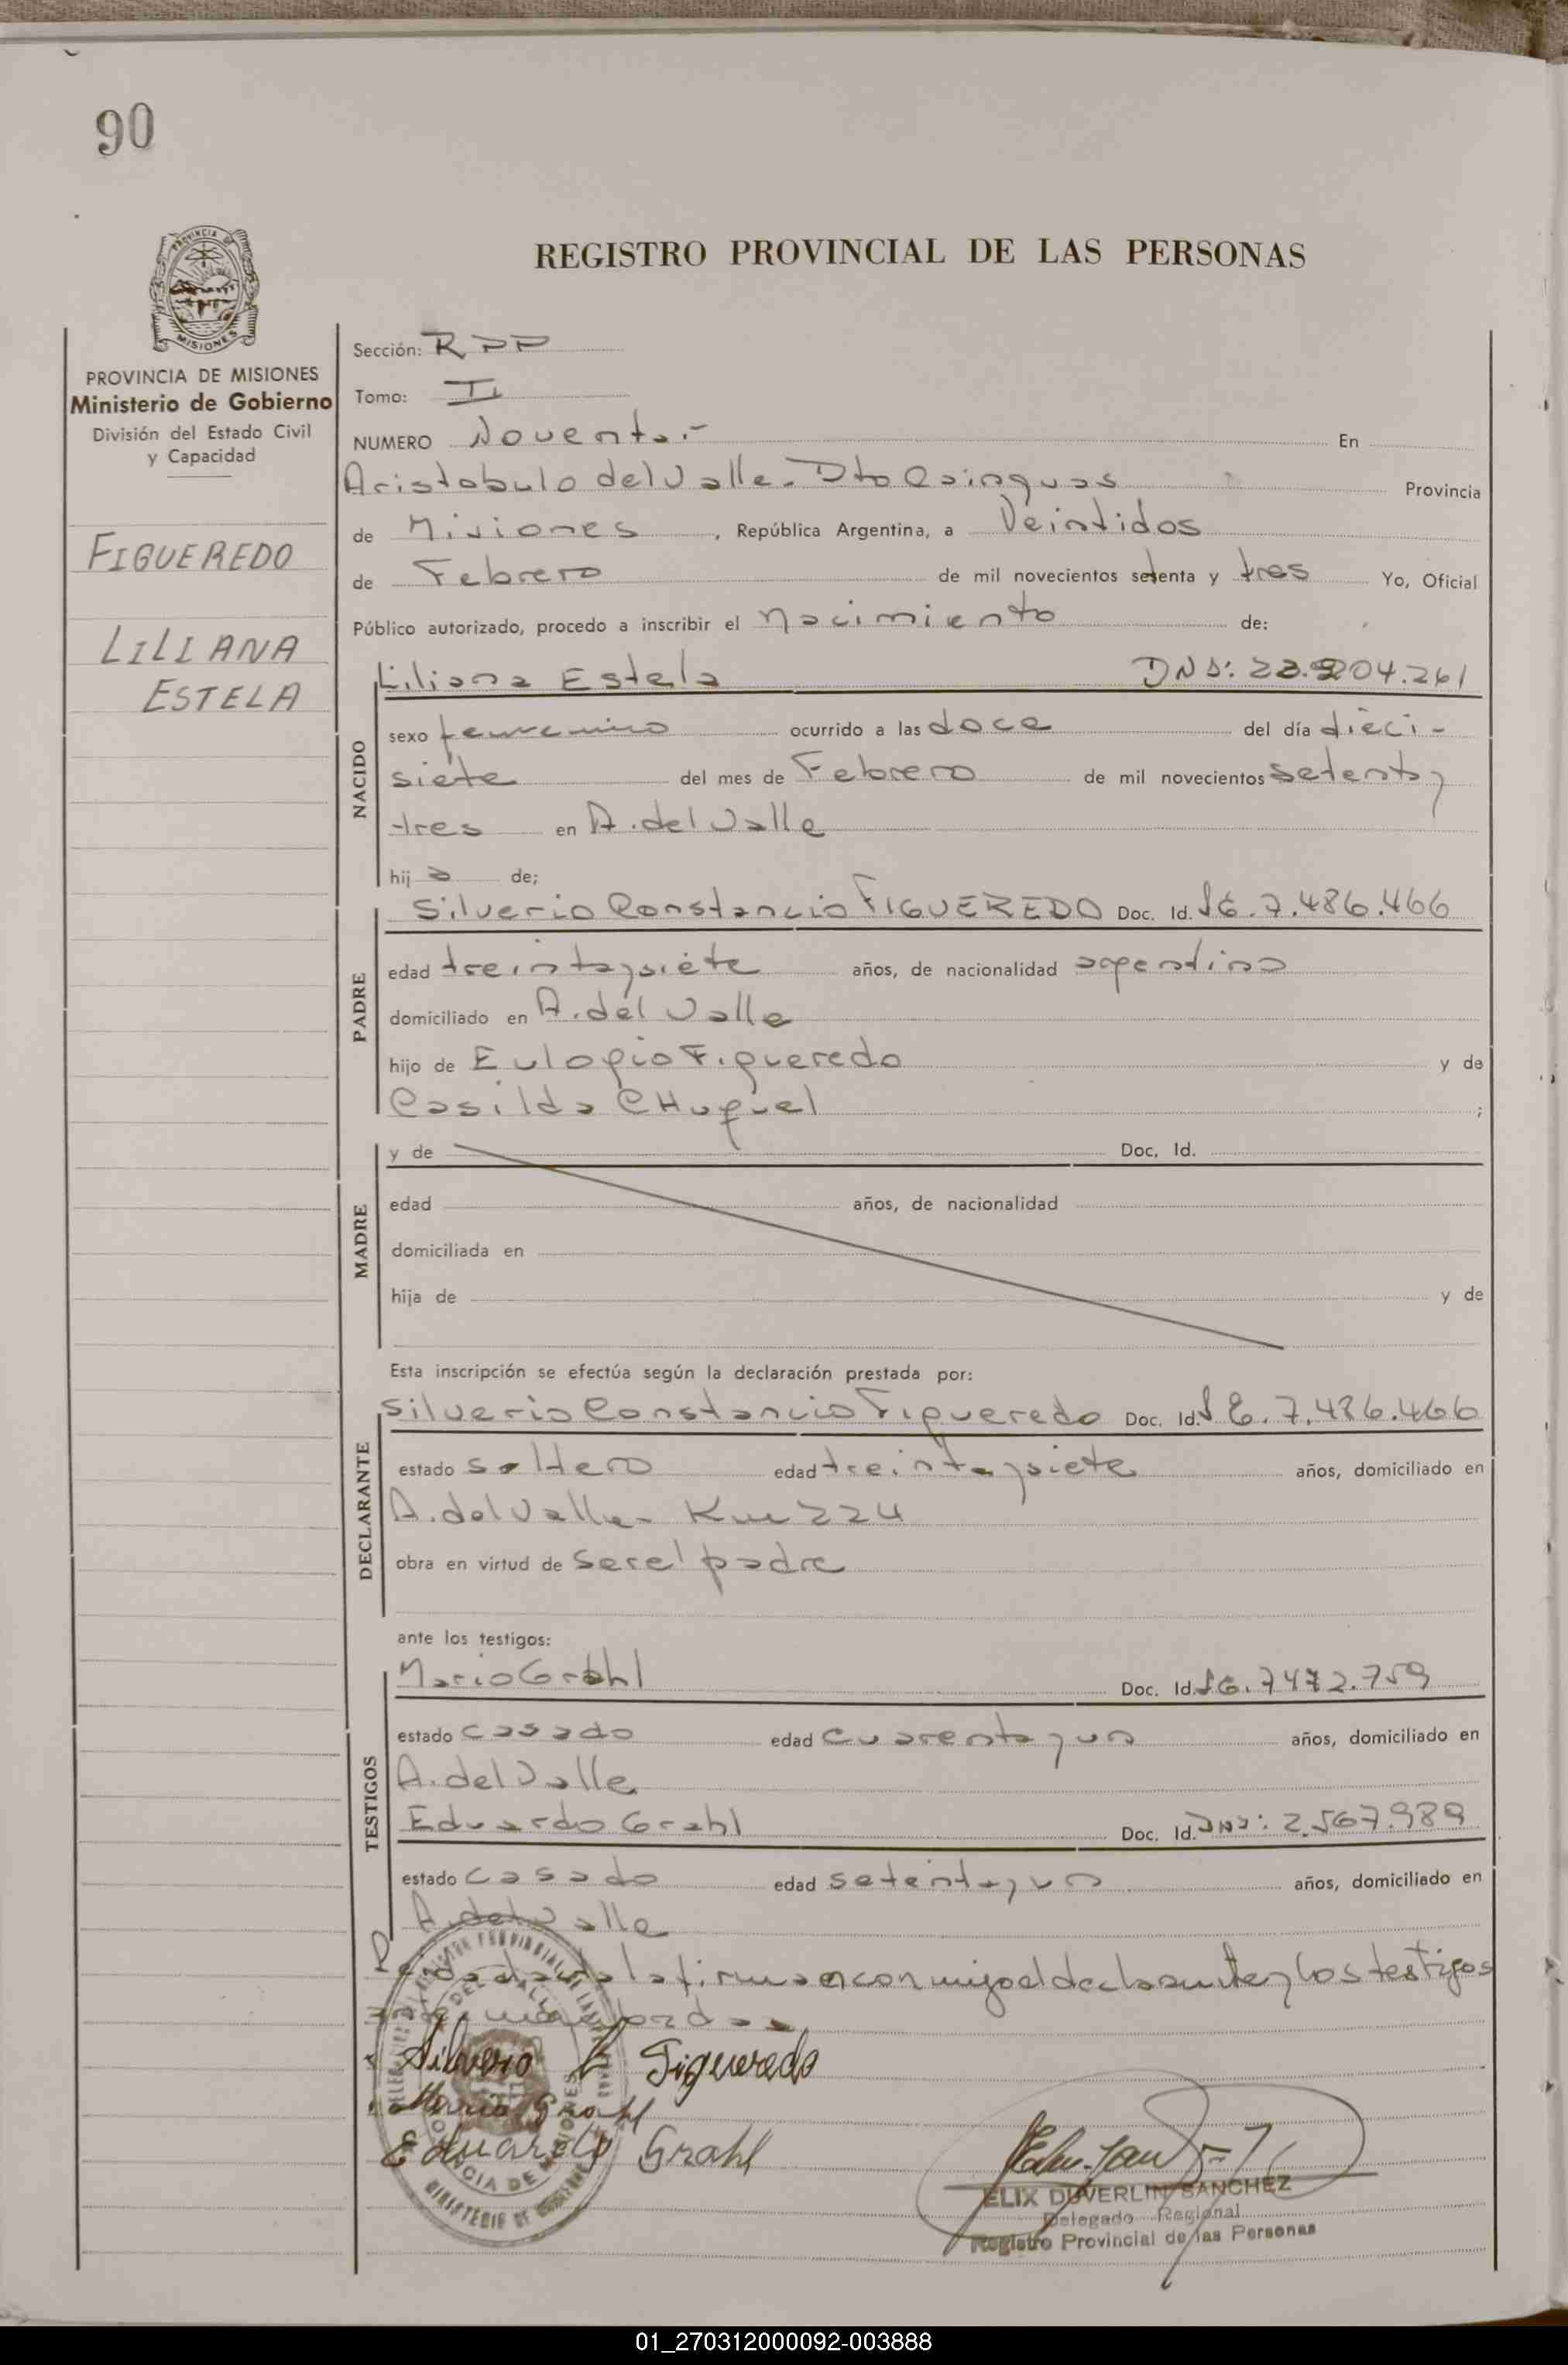 90
REGISTRO PROVINCIAL DE LAS PERSONAS
PROVINCIA DE
MISIONES
PROVINCIA DE MISIONES
Ministerio de Gobierno
División del Estado Civil
y Capacidad
FIGUEREDO
LILIANA
ESTELA
Sección: RPP
Tomo: I
NUMERO Noventa.- En
Aristobulo del Valle. Dto Cainguas Provincia
de Misiones, República Argentina, a Veintidos
de Febrero de mil novecientos setenta y tres Yo, Oficial
Público autorizado, procedo a inscribir el nacimiento de:
Liliana Estela DNI: 204.261
NACIDO
sexo femenino ocurrido a las doce del día dieci-
siete del mes de Febrero de mil novecientos setenta y
tres en A. del Valle
hija de;
PADRE
Silverio Constancio FIGUEREDO Doc. Id. 7.486.466
edad treinta y siete años, de nacionalidad argentina
domiciliado en A. del Valle
hijo de Eulogio Figueredo y de
Casilda CHuquel ;
MADRE
y de Doc. Id.
edad años, de nacionalidad
domiciliada en
hija de y de
Esta inscripción se efectúa según la declaración prestada por:
DECLARANTE
Silverio Constancio Figueredo Doc. Id. 7.486.466
estado soltero edad treinta y siete años, domiciliado en
A. del Valle- Km 224
obra en virtud de ser el padre
ante los testigos:
TESTIGOS
Mario Grahl Doc. Id. 7472.759
estado casado edad cuarenta y un años, domiciliado en
A. del Valle
Eduardo Grahl Doc. Id. DNI: 2.567.989
estado casado edad setenta y un años, domiciliado en
A. del Valle
la firman conmigo el declarante y los testigos
Silverio C Figueredo
Mario Grahl
Eduardo Grahl
MINISTERIO DE GOBIERNO
ELIX DUVERLIN SANCHEZ
Delegado Regional
Registro Provincial de las Personas
01_270312000092-003888